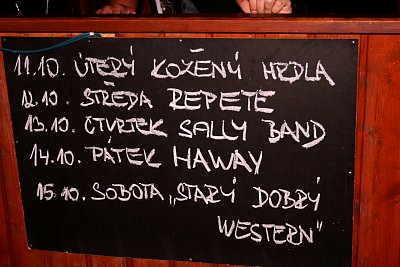 11.10. ÚTERÝ KOŽENÝ HRDLA
12.10. STŘEDA REPETE
13.10. ČTVRTEK SALLY BAND
14.10. PÁTEK HAWAY
15.10. SOBOTA „STARÝ DOBRÝ
WESTERN"